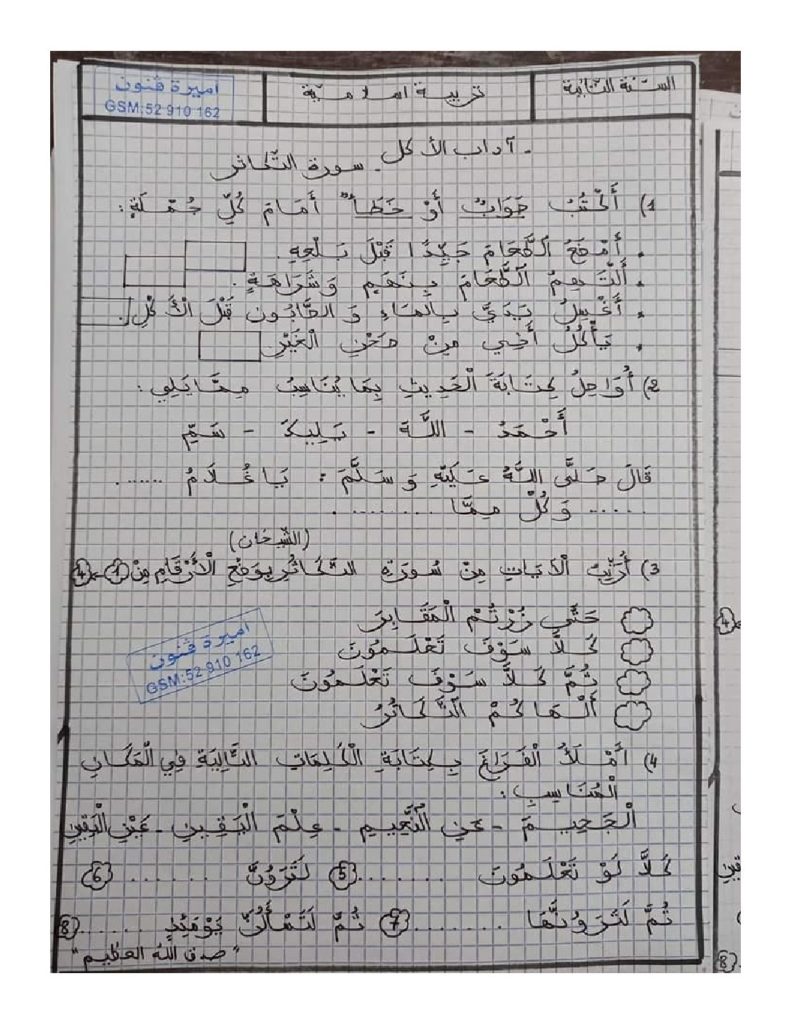 السّنة الثّانية
تربية اسلاميّة
اميرة ڨنون
GSM:52 910 162
- آداب الأكل - سورة التّكاثر
1) أَكْتُبُ صَوَابٌ أَوْ خَطَأٌ أَمَامَ كُلِّ جُمْلَةٍ:
. أَمْضَغُ الطَّعَامَ جَيِّدًا قَبْلَ بَلْعِهِ.
. أَلْتَهِمُ الطَّعَامَ بِنَهَمٍ وَشَرَاهَةٍ.
. أَغْسِلُ يَدَيَّ بِالمَاءِ وَ الصَّابُونِ قَبْلَ الأَكْلِ.
. يَأْكُلُ أَخِي مِنْ صَحْنِ الْغَيْرِ
2) أُوَاصِلُ كِتَابَةَ الْحَدِيثِ بِمَا يُنَاسِبُ مِمَّا يَلِي:
أَحْمَدُ - اللَّهَ - يَلِيكَ - سَمِّ
قَالَ صَلَّى اللَّهُ عَلَيْهِ وَسَلَّمَ: يَا غُلَامُ .......
...... وَكُلْ مِمَّا ..........
(الشّيخان)
3) أُرَتِّبُ الْآيَاتِ مِنْ سُورَةِ التَّكَاثُرِ بِوَضْعِ الْأَرْقَامِ مِنْ 1 - 4
حَتَّى زُرْتُمُ الْمَقَابِرَ
كَلَّا سَوْفَ تَعْلَمُونَ
ثُمَّ كَلَّا سَوْفَ تَعْلَمُونَ
أَلْهَاكُمُ التَّكَاثُرُ
اميرة ڨنون
GSM:52 910 162
4) أَمْلَأُ الْفَرَاغَ بِكِتَابَةِ الْكَلِمَاتِ التَّالِيَةِ فِي الْمَكَانِ
الْمُنَاسِبِ:
الْجَحِيمَ - عَنِ النَّعِيمِ - عِلْمَ الْيَقِينِ - عَيْنَ الْيَقِينِ
كَلَّا لَوْ تَعْلَمُونَ ........ 5 لَتَرَوُنَّ ....... 6
ثُمَّ لَتَرَوُنَّهَا ......... 7 ثُمَّ لَتَسْأَلُنَّ يَوْمَئِذٍ ...... 8
"صدق اللّه العظيم"